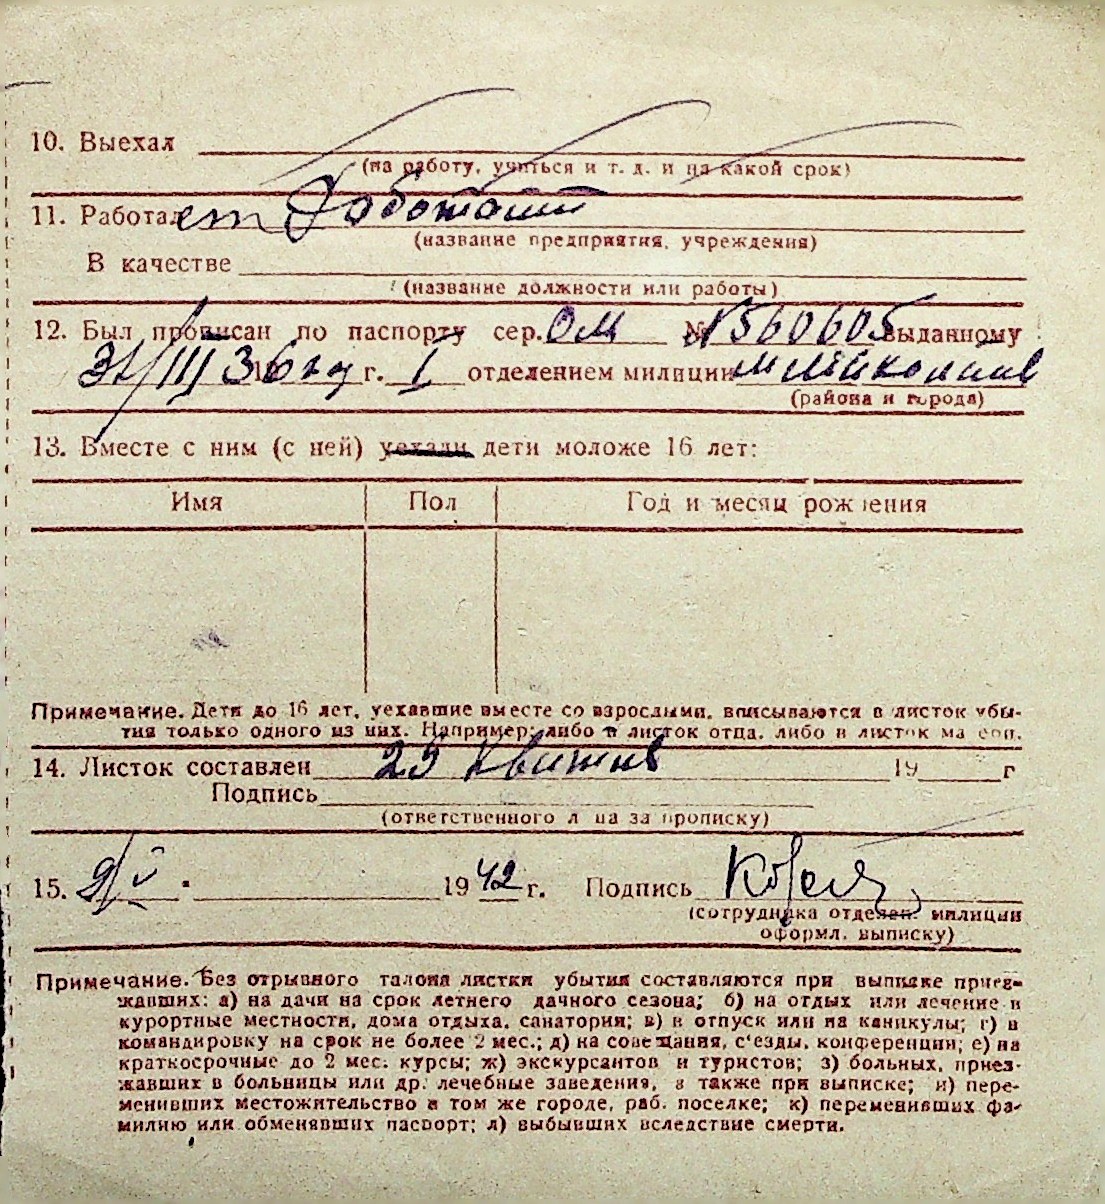 10. Выехал
(на работу, учиться и т. д. и на какой срок)
11. Работал
(название предприятия, учреждения)
В качестве
(название должности или работы)
12. Был прописан по паспорту сер. ОМ № 560605 выданному
31/III 36 г. I отделением милиции
(района и города)
13. Вместе с ним (с ней) уехали дети моложе 16 лет:
Имя Пол Год и месяц рождения
Примечание. Дети до 16 лет, уехавшие вместе со взрослыми, вписываются в листок убы-
тия только одного из них. Например: либо в листок отца, либо в листок матери.
14. Листок составлен 29 Квитня 19 г
Подпись
(ответственного лица за прописку)
15. 9/V 1942 г. Подпись
(сотрудника отделен. милиции
оформл. выписку)
Примечание. Без отрывного талона листки убытия составляются при выписке приез-
жавших: а) на дачи на срок летнего дачного сезона; б) на отдых или лечение в
курортные местности, дома отдыха, санатории; в) в отпуск или на каникулы; г) в
командировку на срок не более 2 мес.; д) на совещания, с'езды, конференции; е) на
краткосрочные до 2 мес. курсы; ж) экскурсантов и туристов; з) больных, приез-
жавших в больницы или др. лечебные заведения, а также при выписке; и) пере-
менивших местожительство в том же городе, раб. поселке; к) переменивших фа-
милию или обменявших паспорт; л) выбывших вследствие смерти.